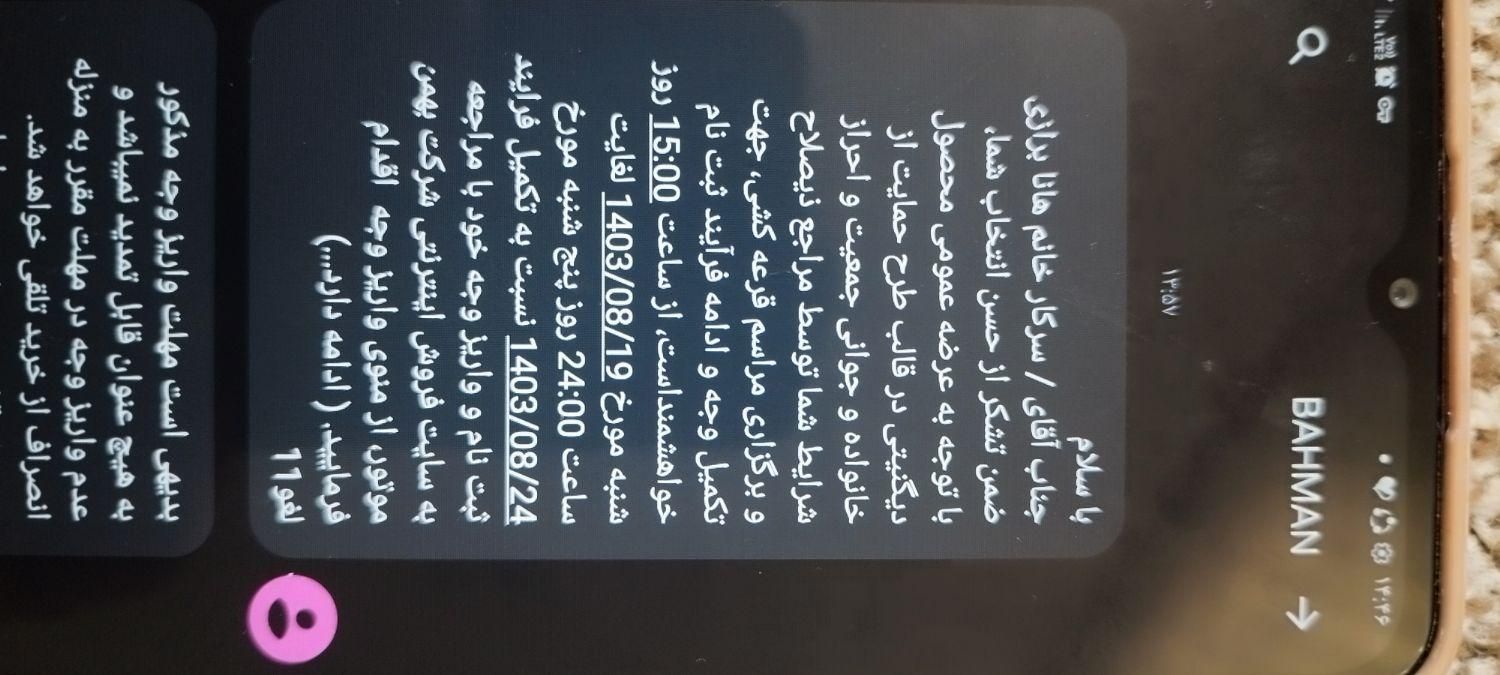 ۱۴:۴۶
VoLTE2
BAHMAN
۱۳:۵۷
با سلام
جناب آقای / سرکار خانم هانا برازی
ضمن تشکر از حسن انتخاب شما،
با توجه به عرضه عمومی محصول
دیگنیتی در قالب طرح حمایت از
خانواده و جوانی جمعیت و احراز
شرایط شما توسط مراجع ذیصلاح
و برگزاری مراسم قرعه کشی، جهت
تکمیل وجه و ادامه فرآیند ثبت نام
خواهشمنداست، از ساعت 15:00 روز
شنبه مورخ 1403/08/19 لغایت
ساعت 24:00 روز پنج شنبه مورخ
1403/08/24 نسبت به تکمیل فرایند
ثبت نام و واریز وجه خود با مراجعه
به سایت فروش اینترنتی شرکت بهمن
موتور، از منوی واریز وجه اقدام
فرمایید. ( ادامه دارد...)
لغو11
بدیهی است مهلت واریز وجه مذکور
به هیچ عنوان قابل تمدید نمیباشد و
عدم واریز وجه در مهلت مقرر به منزله
انصراف از خرید تلقی خواهد شد.